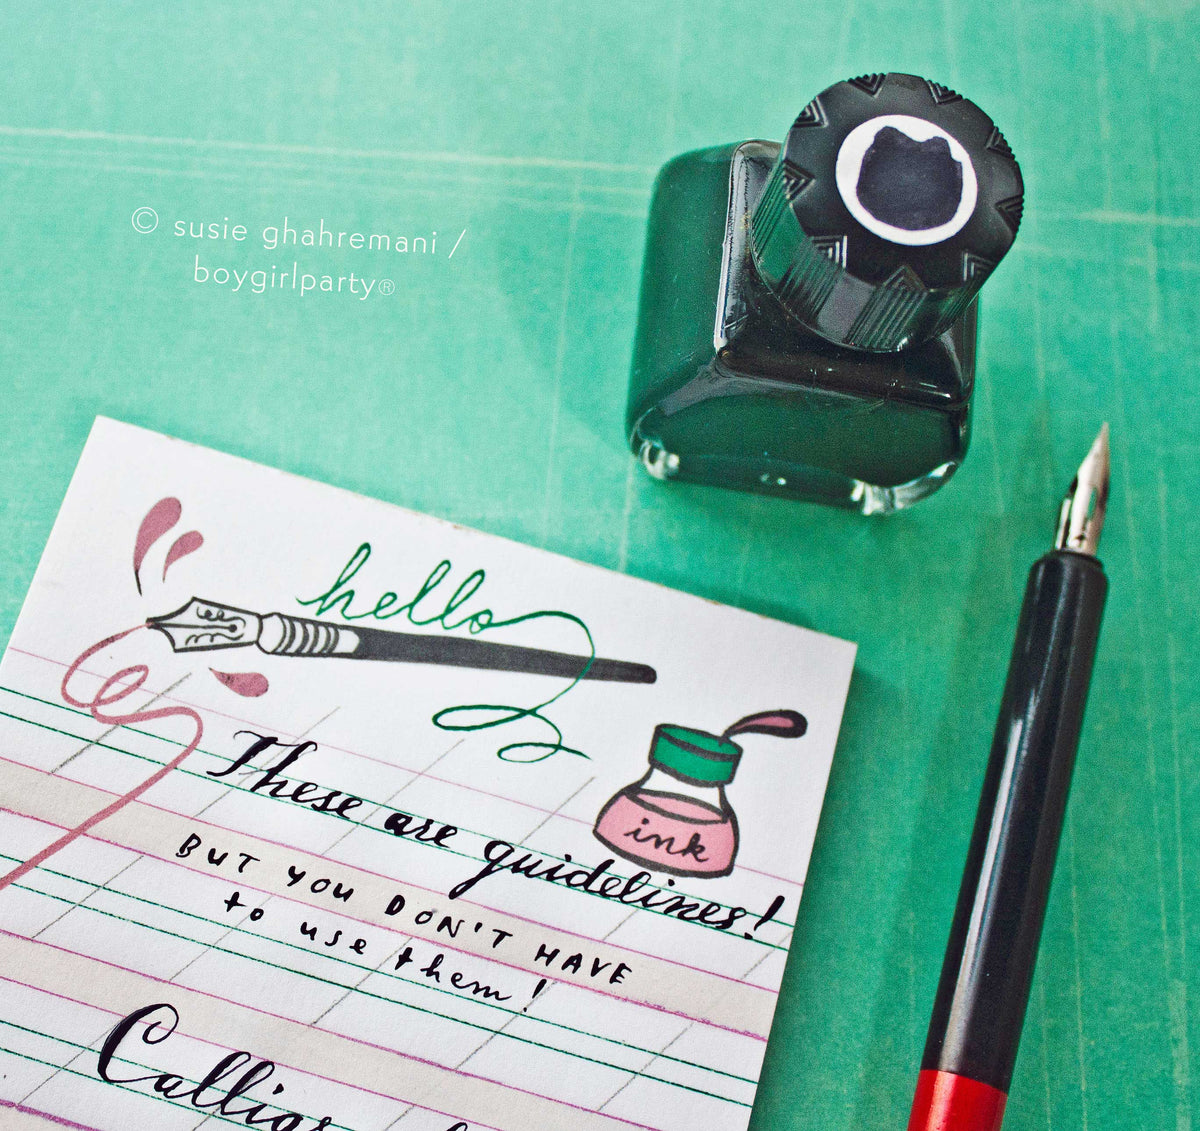 © susie ghahremani /
boygirlparty®
hello
ink
These are guidelines!
BUT YOU DON'T HAVE
to use them!